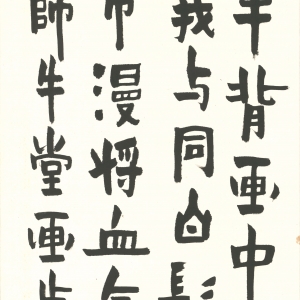 背画中
我与同白
漫将血
師牛堂画